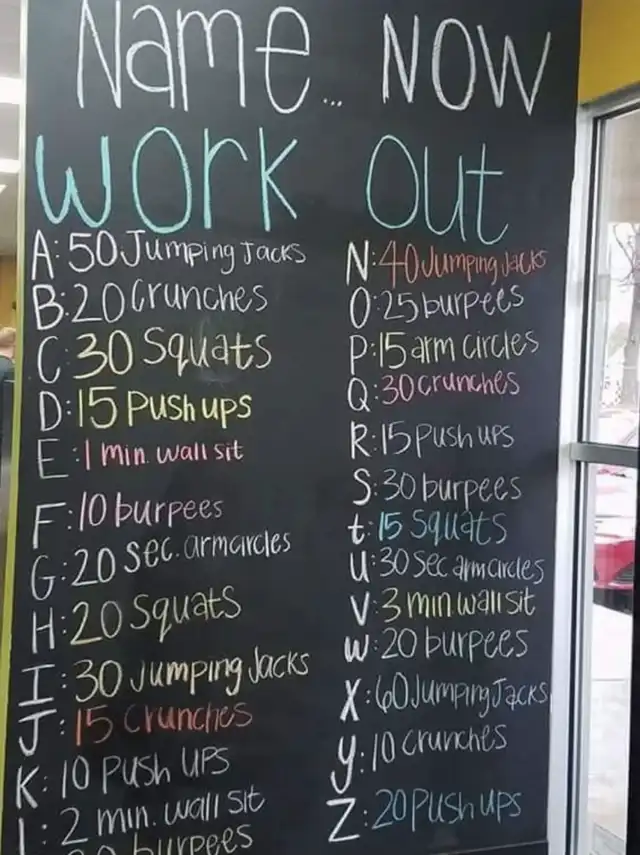 Name... NOW
WORK OUT
A: 50 Jumping Jacks
B: 20 Crunches
C: 30 Squats
D: 15 Push ups
E: 1 min. wall sit
F: 10 burpees
G: 20 sec. arm circles
H: 20 Squats
I: 30 Jumping Jacks
J: 15 Crunches
K: 10 Push ups
L: 2 min. wall sit
burpees
N: 40 Jumping Jacks
O: 25 burpees
P: 15 arm circles
Q: 30 crunches
R: 15 push ups
S: 30 burpees
t: 15 Squats
U: 30 sec arm circles
V: 3 min wall sit
W: 20 burpees
X: 60 Jumping Jacks
y: 10 crunches
Z: 20 Push ups